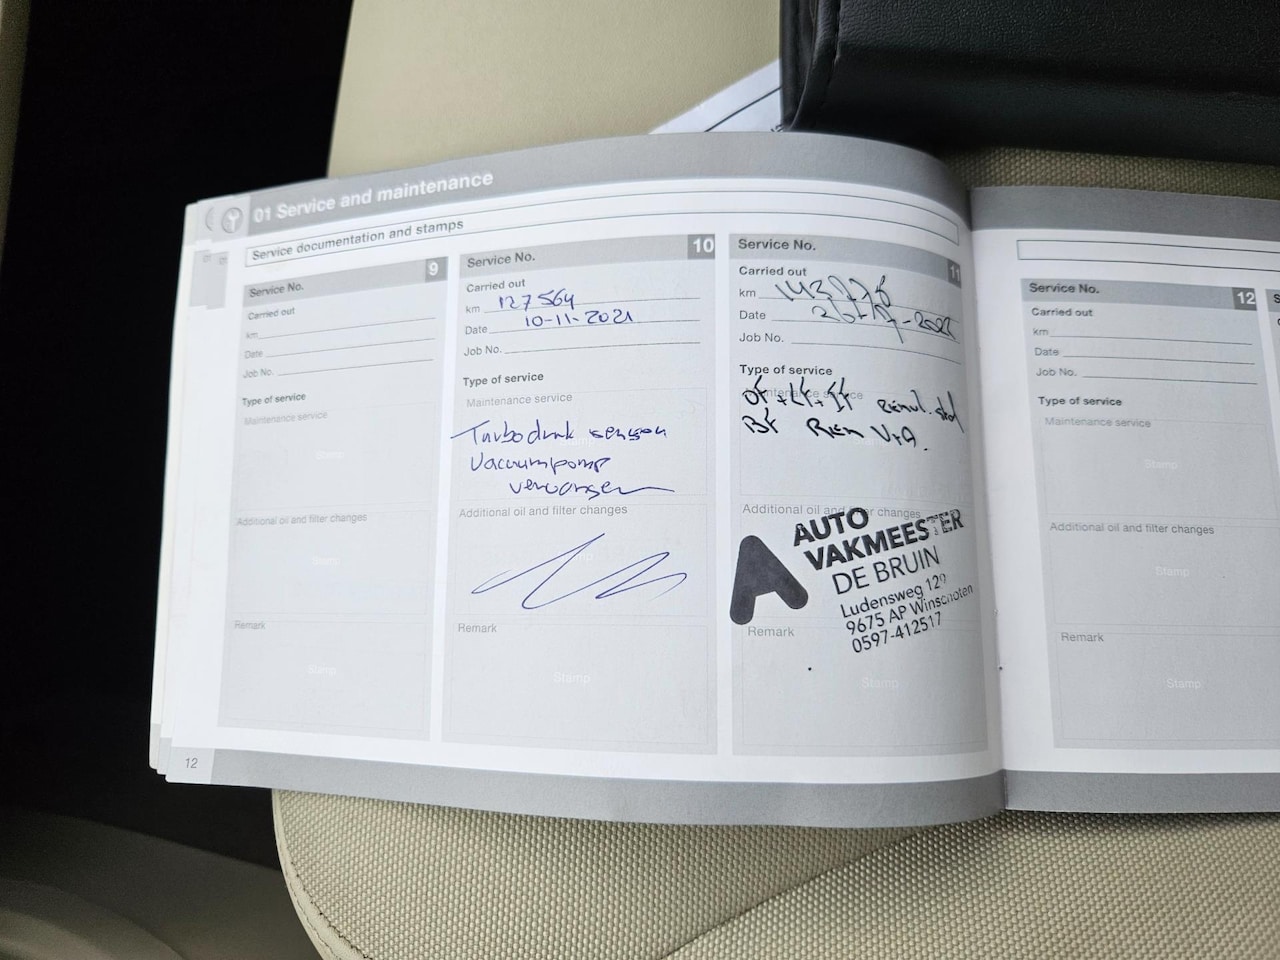 01 Service and maintenance
Service documentation and stamps
Service No. 9
Carried out
km
Date
Job No.
Type of service
Maintenance service
Stamp
Additional oil and filter changes
Stamp
Remark
Stamp
12
Service No. 10
Carried out
km 127564
Date 10-11-2021
Job No.
Type of service
Maintenance service
Turbodruk sensor
Vacuumpomp
vervangen
Additional oil and filter changes
Remark
Stamp
Service No. 11
Carried out
km
Date
Job No.
Type of service
Maintenance service
BF Rem V+A.
Additional oil and filter changes
AUTO
VAKMEESTER
DE BRUIN
Ludensweg 129
9675 AP Winschoten
0597-412517
Remark
Stamp
Service No. 12
Carried out
km
Date
Job No.
Type of service
Maintenance service
Stamp
Additional oil and filter changes
Stamp
Remark
Stamp